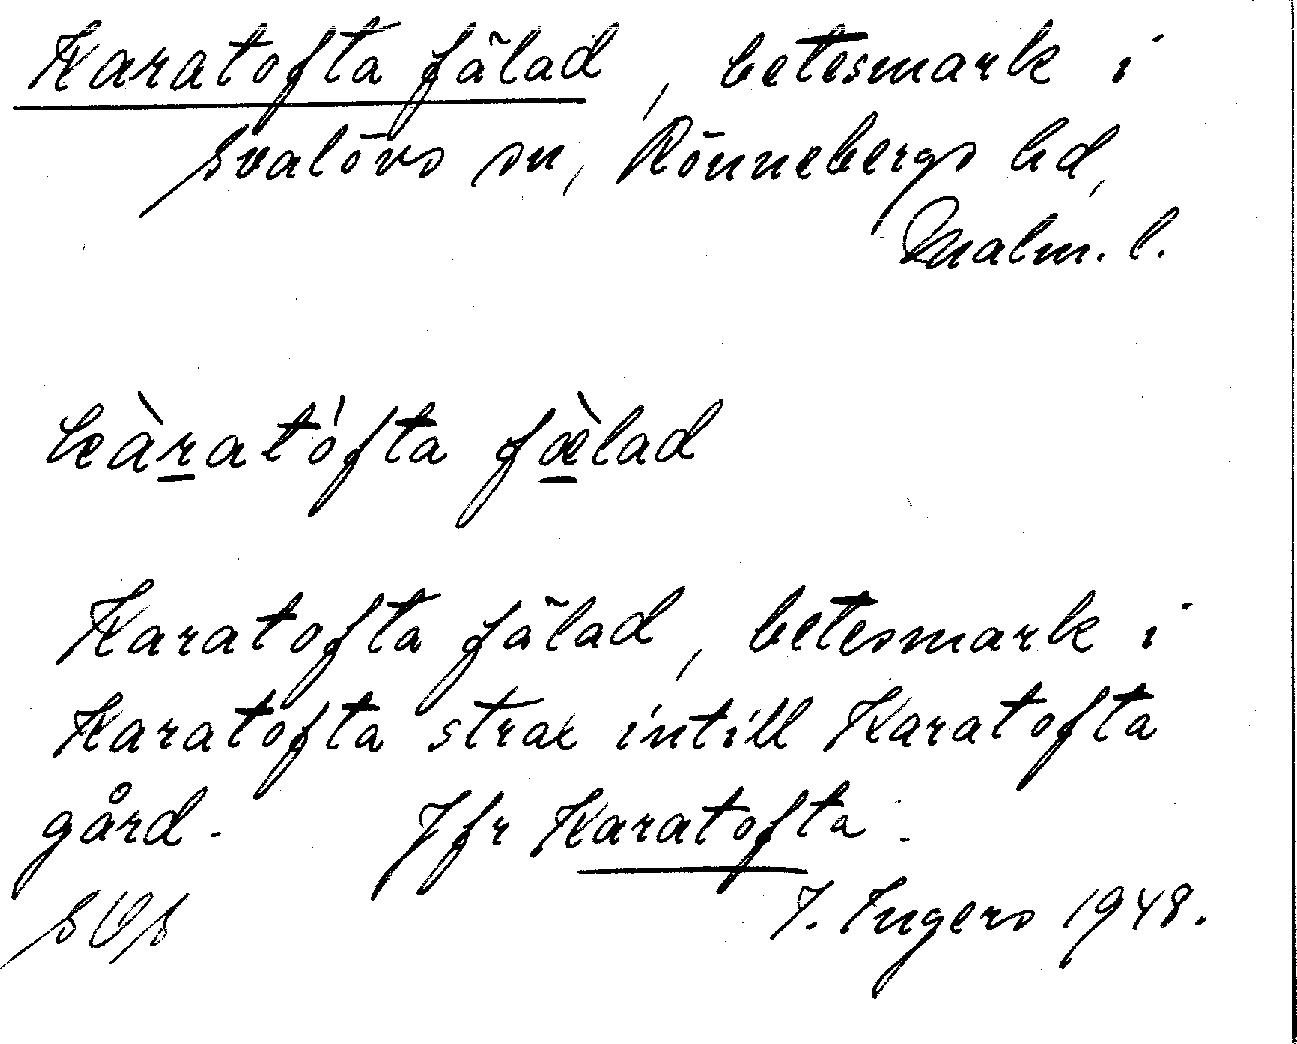 Karatofta fälad, betesmark i
Svalövs sn, Rönnebergs hd,
Malm. l.
kàratófta fæ̀lad
Karatofta fälad, betesmark i
Karatofta strax intill Karatofta
gård. Jfr Karatofta.
I. Ingers 1948.